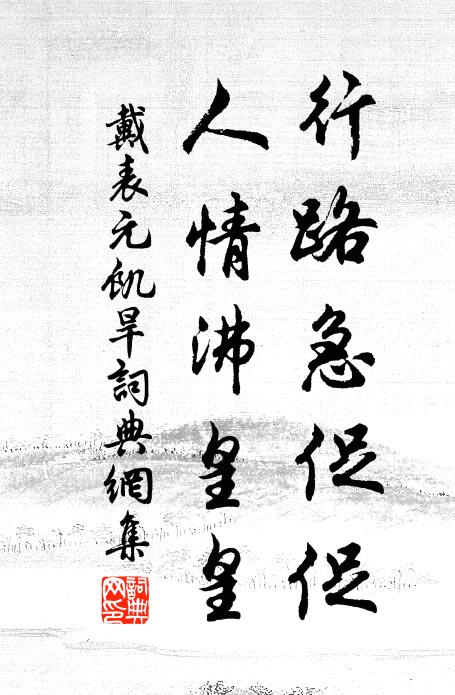 行路急促促
人情沸皇皇
戴表元飢旱詞典網集
詞典網印